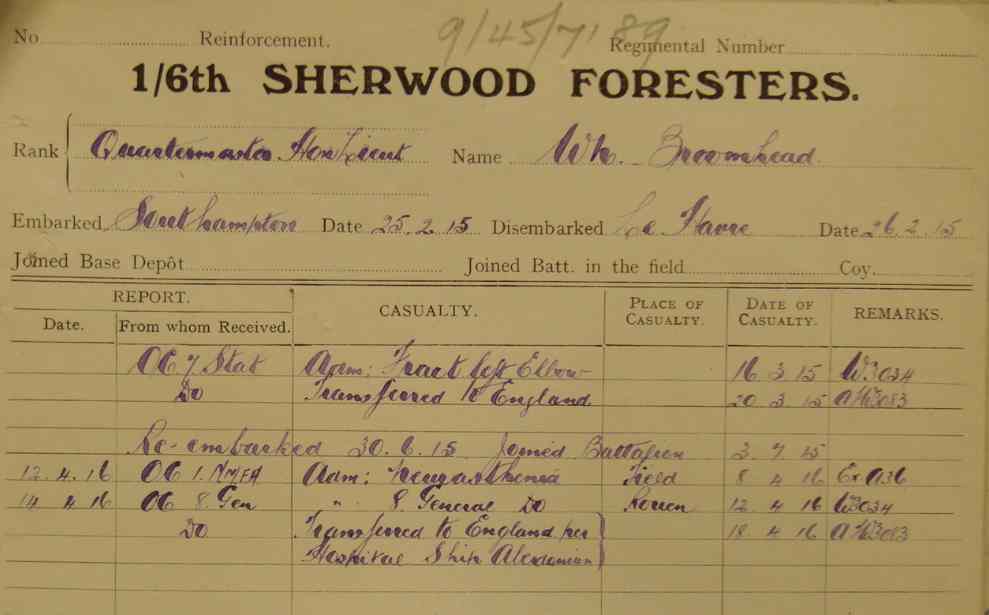 No. Reinforcement. 9/45/7189 Regimental Number
1/6th SHERWOOD FORESTERS.
Rank Quartermaster Hon Lieut Name Wm. Broomhead
Embarked Southampton Date 25.2.15 Disembarked Le Havre Date 26.2.15
Joined Base Depôt Joined Batt. in the field Coy.
REPORT. CASUALTY. PLACE OF CASUALTY. DATE OF CASUALTY. REMARKS.
Date. From whom Received.
OC 7 Stat Adm: Fract left Elbow 16 3 15 W3034
Do Transferred to England 20 3 15 AW3083
Re-embarked 30.6.15 Joined Battalion 3 7 15
12.4.16 OC 1.NMFA Adm: Neurasthenia Field 8 4 16 Ex A36
14 4 16 OC 8 Gen " 8 General Do Rouen 12 4 16 W3034
Do Transferred to England per 18 4 16 AW3083
Hospital Ship